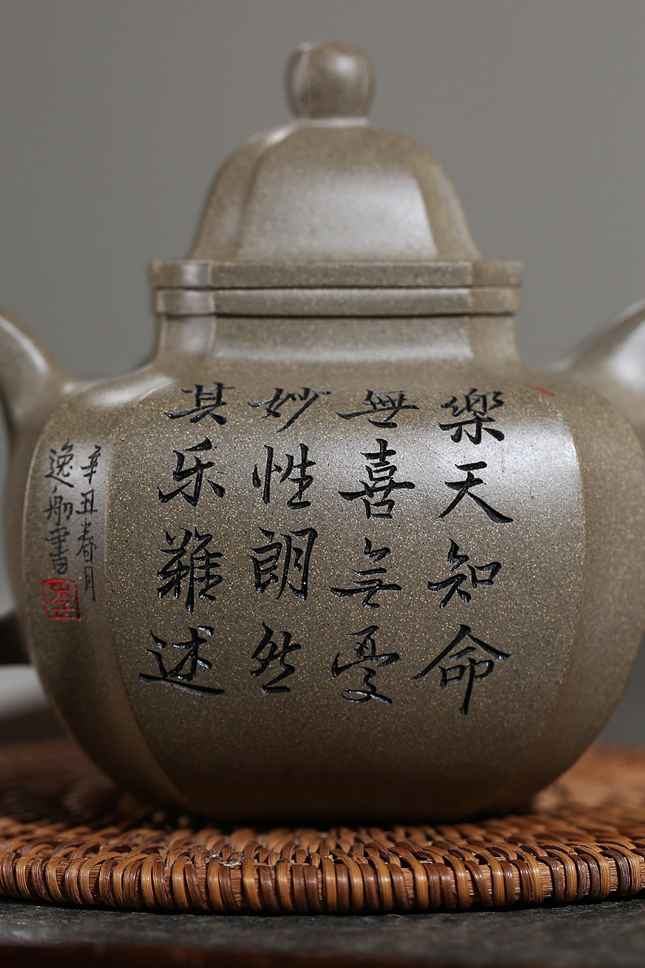 樂天知命
無喜無憂
妙性朗然
其乐難述
辛丑春月
逸舟書